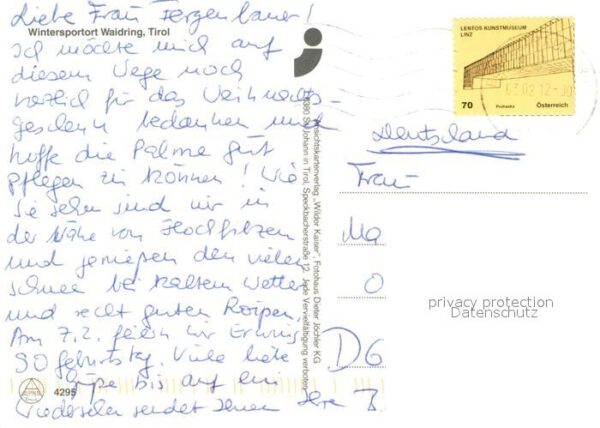 Liebe Frau Fergenbauer!
Wintersportort Waidring, Tirol
Ich möchte mich auf
diesem Wege noch
herzlich für das Weihnachts-
geschenk bedanken und
hoffe die Palme gut
pflegen zu können! Wie
Sie sehen sind wir in
der Nähe von Hochfilzen
und genießen den vielen
Schnee bei kaltem Wetter
und recht guten Loipen.
Am 7.2. feiern wir Erwins
90 Geburtstag. Viele liebe
Grüße bis auf ein
Wiedersehen sendet Ihnen Ihre
4295
Ansichtskartenverlag „Wilder Kaiser“, Fotohaus Dieter Jöchler KG
6380 St. Johann in Tirol, Speckbacherstraße 12. Jede Vervielfältigung verboten.
LENTOS KUNSTMUSEUM
LINZ
70
Österreich
Deutschland
Frau
Ma
O
D6
privacy protection
Datenschutz